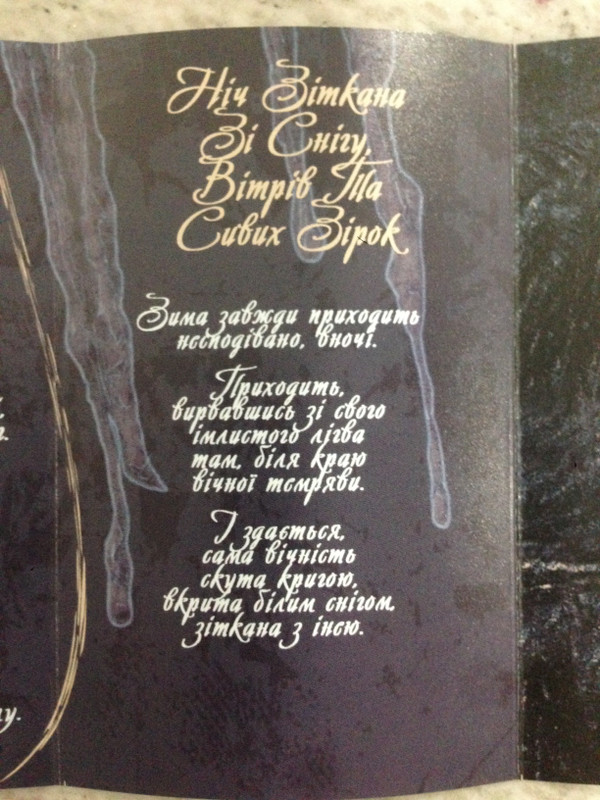 Ніч Зіткана
Зі Снігу,
Вітрів Та
Сивих Зірок
Зима завжди приходить
несподівано, вночі.
Приходить,
вирвавшись зі свого
імлистого лігва
там, біля краю
вічної темряви.
І здається,
сама вічність
скута кригою,
вкрита білим снігом,
зіткана з інею.